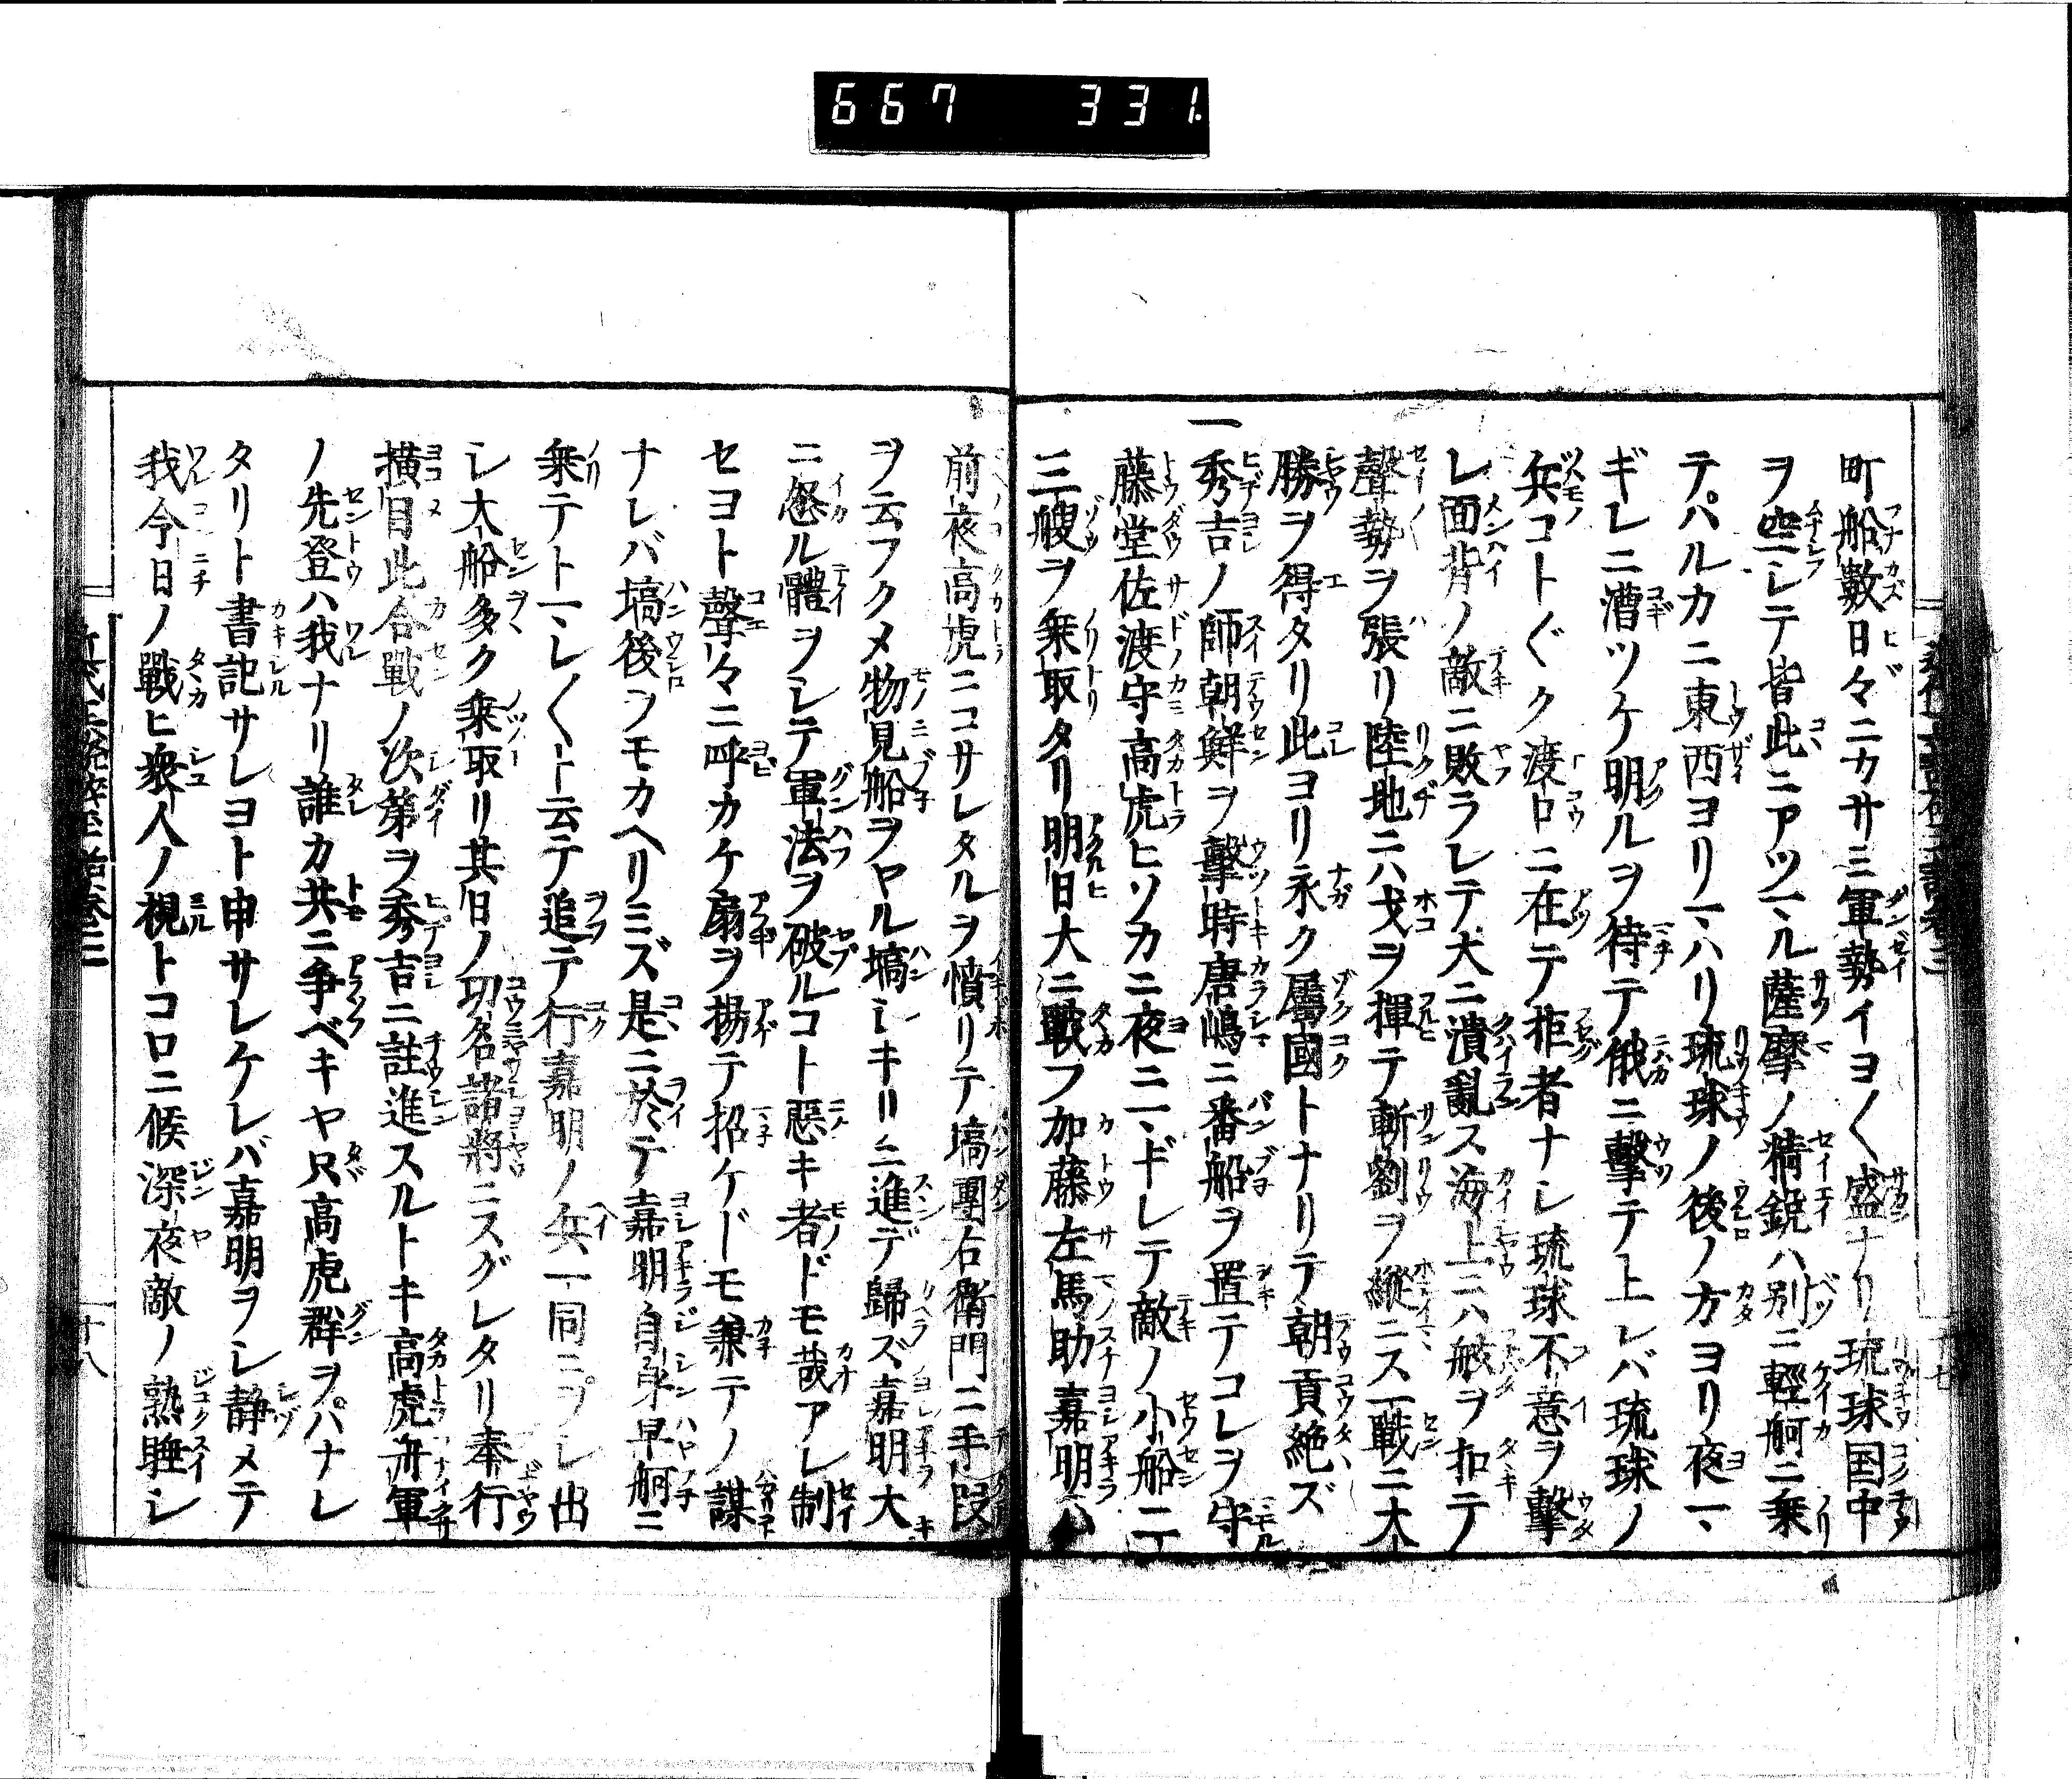 667 331
町船数日々ニカサミ軍勢イヨ〱盛ナリ琉球国中
ヲ空シテ皆此ニアツマル薩摩ノ精鋭ハ別ニ軽舸ニ乗
テハルカニ東西ヨリマハリ琉球ノ後ノ方ヨリ夜マ
ギレニ漕ツケ明ルヲ待テ俄ニ撃テ上レバ琉球ノ
兵コト〲ク渡口ニ在テ拒者ナシ琉球不意ヲ撃
レ面背ノ敵ニ敗ラレテ大ニ潰乱ス海上ニハ舷ヲ扣テ
聲勢ヲ張リ陸地ニハ戈ヲ揮テ斬劉ヲ縦ニス一戰ニ大
勝ヲ得タリ此ヨリ永ク屬國トナリテ朝貢絶ズ
一秀吉ノ師朝鮮ヲ撃時唐嶋ニ番船ヲ置テコレヲ守
藤堂佐渡守高虎ヒソカニ夜ニマギレテ敵ノ小船二
三艘ヲ乗取タリ明日大ニ戰フ加藤左馬助嘉明ハ
前夜高虎ニコサレタルヲ憤リテ塙團右衛門ニ手段
ヲ云フクメ物見船ヲヤル塙シキリニ進デ歸ズ嘉明大
ニ怒ル體ヲシテ軍法ヲ破ルコト惡キ者ドモ哉アレ制
セヨト聲々ニ呼カケ扇ヲ揚テ招ケドモ兼テノ謀
ナレバ塙後ヲモカヘリミズ是ニ於テ嘉明自身早舸ニ
乗テトマレ〱ト云テ追テ行嘉明ノ兵一同ニヲシ出
シ大船多ク乗取リ其日ノ功名諸將ニスグレタリ奉行
横目此合戰ノ次第ヲ秀吉ニ註進スルトキ高虎舟軍
ノ先登ハ我ナリ誰カ共ニ争ベキヤ只高虎群ヲハナレ
タリト書記サレヨト申サレケレバ嘉明ヲシ静メテ
我今日ノ戰ヒ衆人ノ視トコロニ候深夜敵ノ熟睡シ
十八